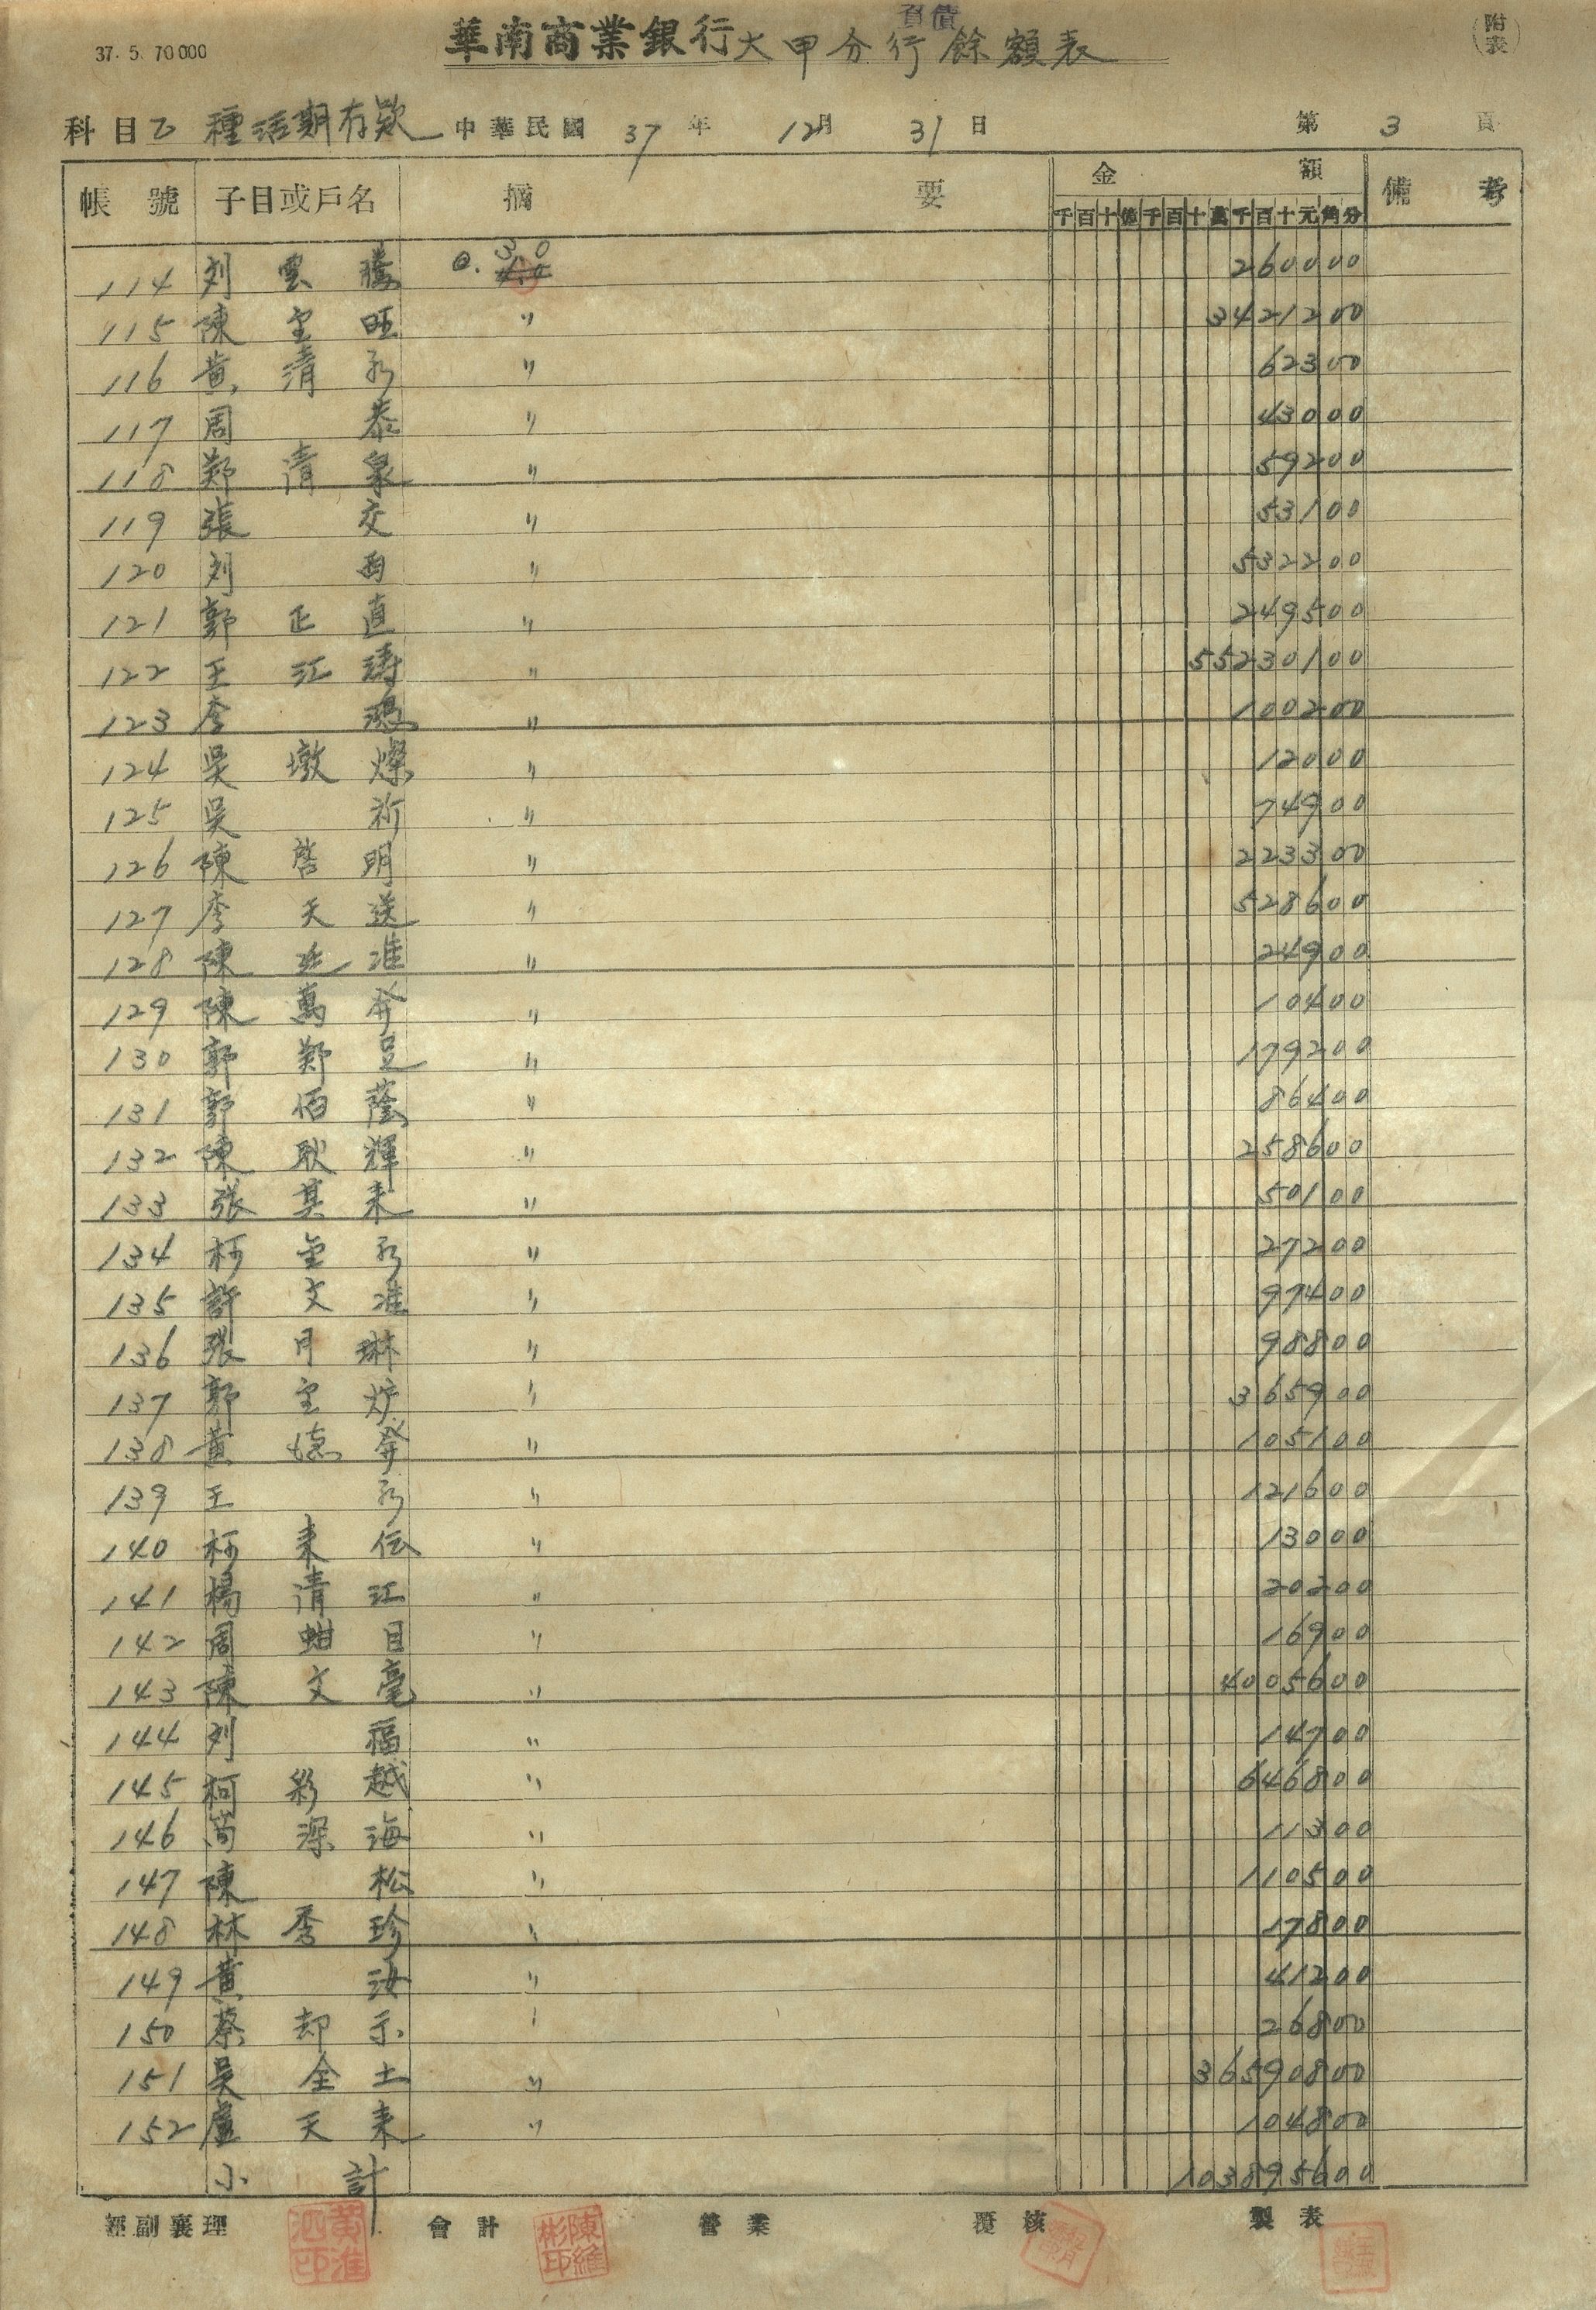 37. 5. 70000
華南商業銀行大甲分行負債餘額表
(附表)
科目乙種活期存欵 中華民國37年12月31日 第3頁
帳號 子目或戶名 摘要 金額 備考
千百十億千百十萬千百十元角分
114 刘雲騰 @. 3.0 260000
115 陳金旺 〃 3421200
116 黄清永 〃 62300
117 周泰 〃 43000
118 鄭清泉 〃 59200
119 張交 〃 53100
120 刘西 〃 532200
121 郭正直 〃 249500
122 王江濤 〃 55230100
123 李鴻 〃 100200
124 吳墩燦 〃 12000
125 吳祈 〃 74900
126 陳啓明 〃 223300
127 李天送 〃 528600
128 陳准 〃 24900
129 陳萬发 〃 10400
130 郭鄭足 〃 179200
131 郭佰蔭 〃 86400
132 陳耿輝 〃 258600
133 張其来 〃 50100
134 柯金永 〃 27200
135 許文准 〃 97400
136 張月琳 〃 98800
137 郭金炉 〃 365900
138 黄德发 〃 105100
139 王永 〃 121600
140 柯来伝 〃 13000
141 楊清江 〃 20200
142 周蚶目 〃 16900
143 陳文毫 〃 4005600
144 刘福 〃 14700
145 柯彩越 〃 646800
146 深海 〃 11300
147 陳松 〃 110500
148 林秀珍 〃 17800
149 黄汝 〃 41200
150 蔡却示 〃 26800
151 吳全土 〃 36590800
152 盧天来 〃 104800
小計 103895600
經副襄理 會計 營業 覆核 製表
黄淮泗印
陳維彬印